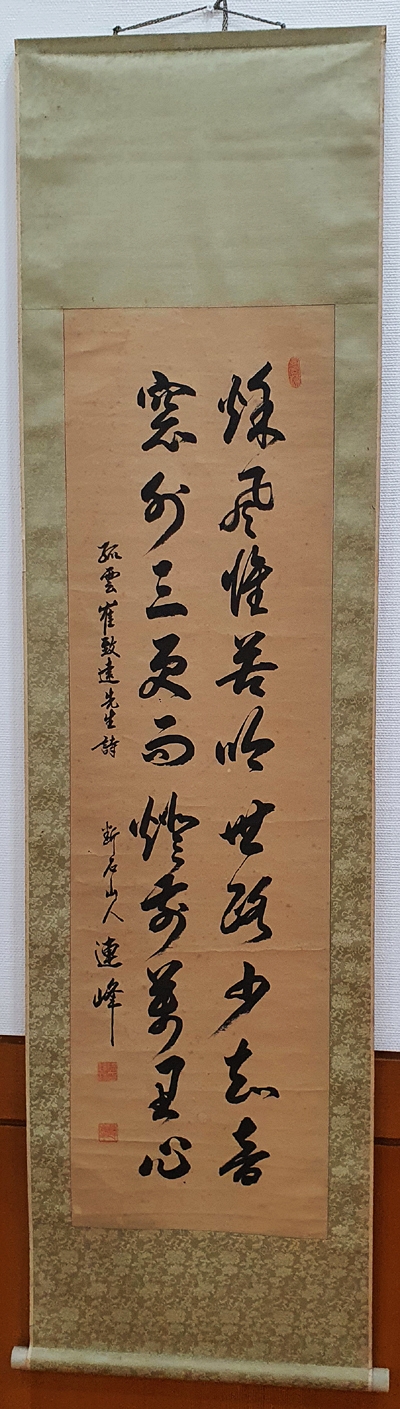 秌風惟苦吟世路少知音
窓外三更雨燈前萬里心
孤雲崔致遠先生詩
斷石山人 連峰